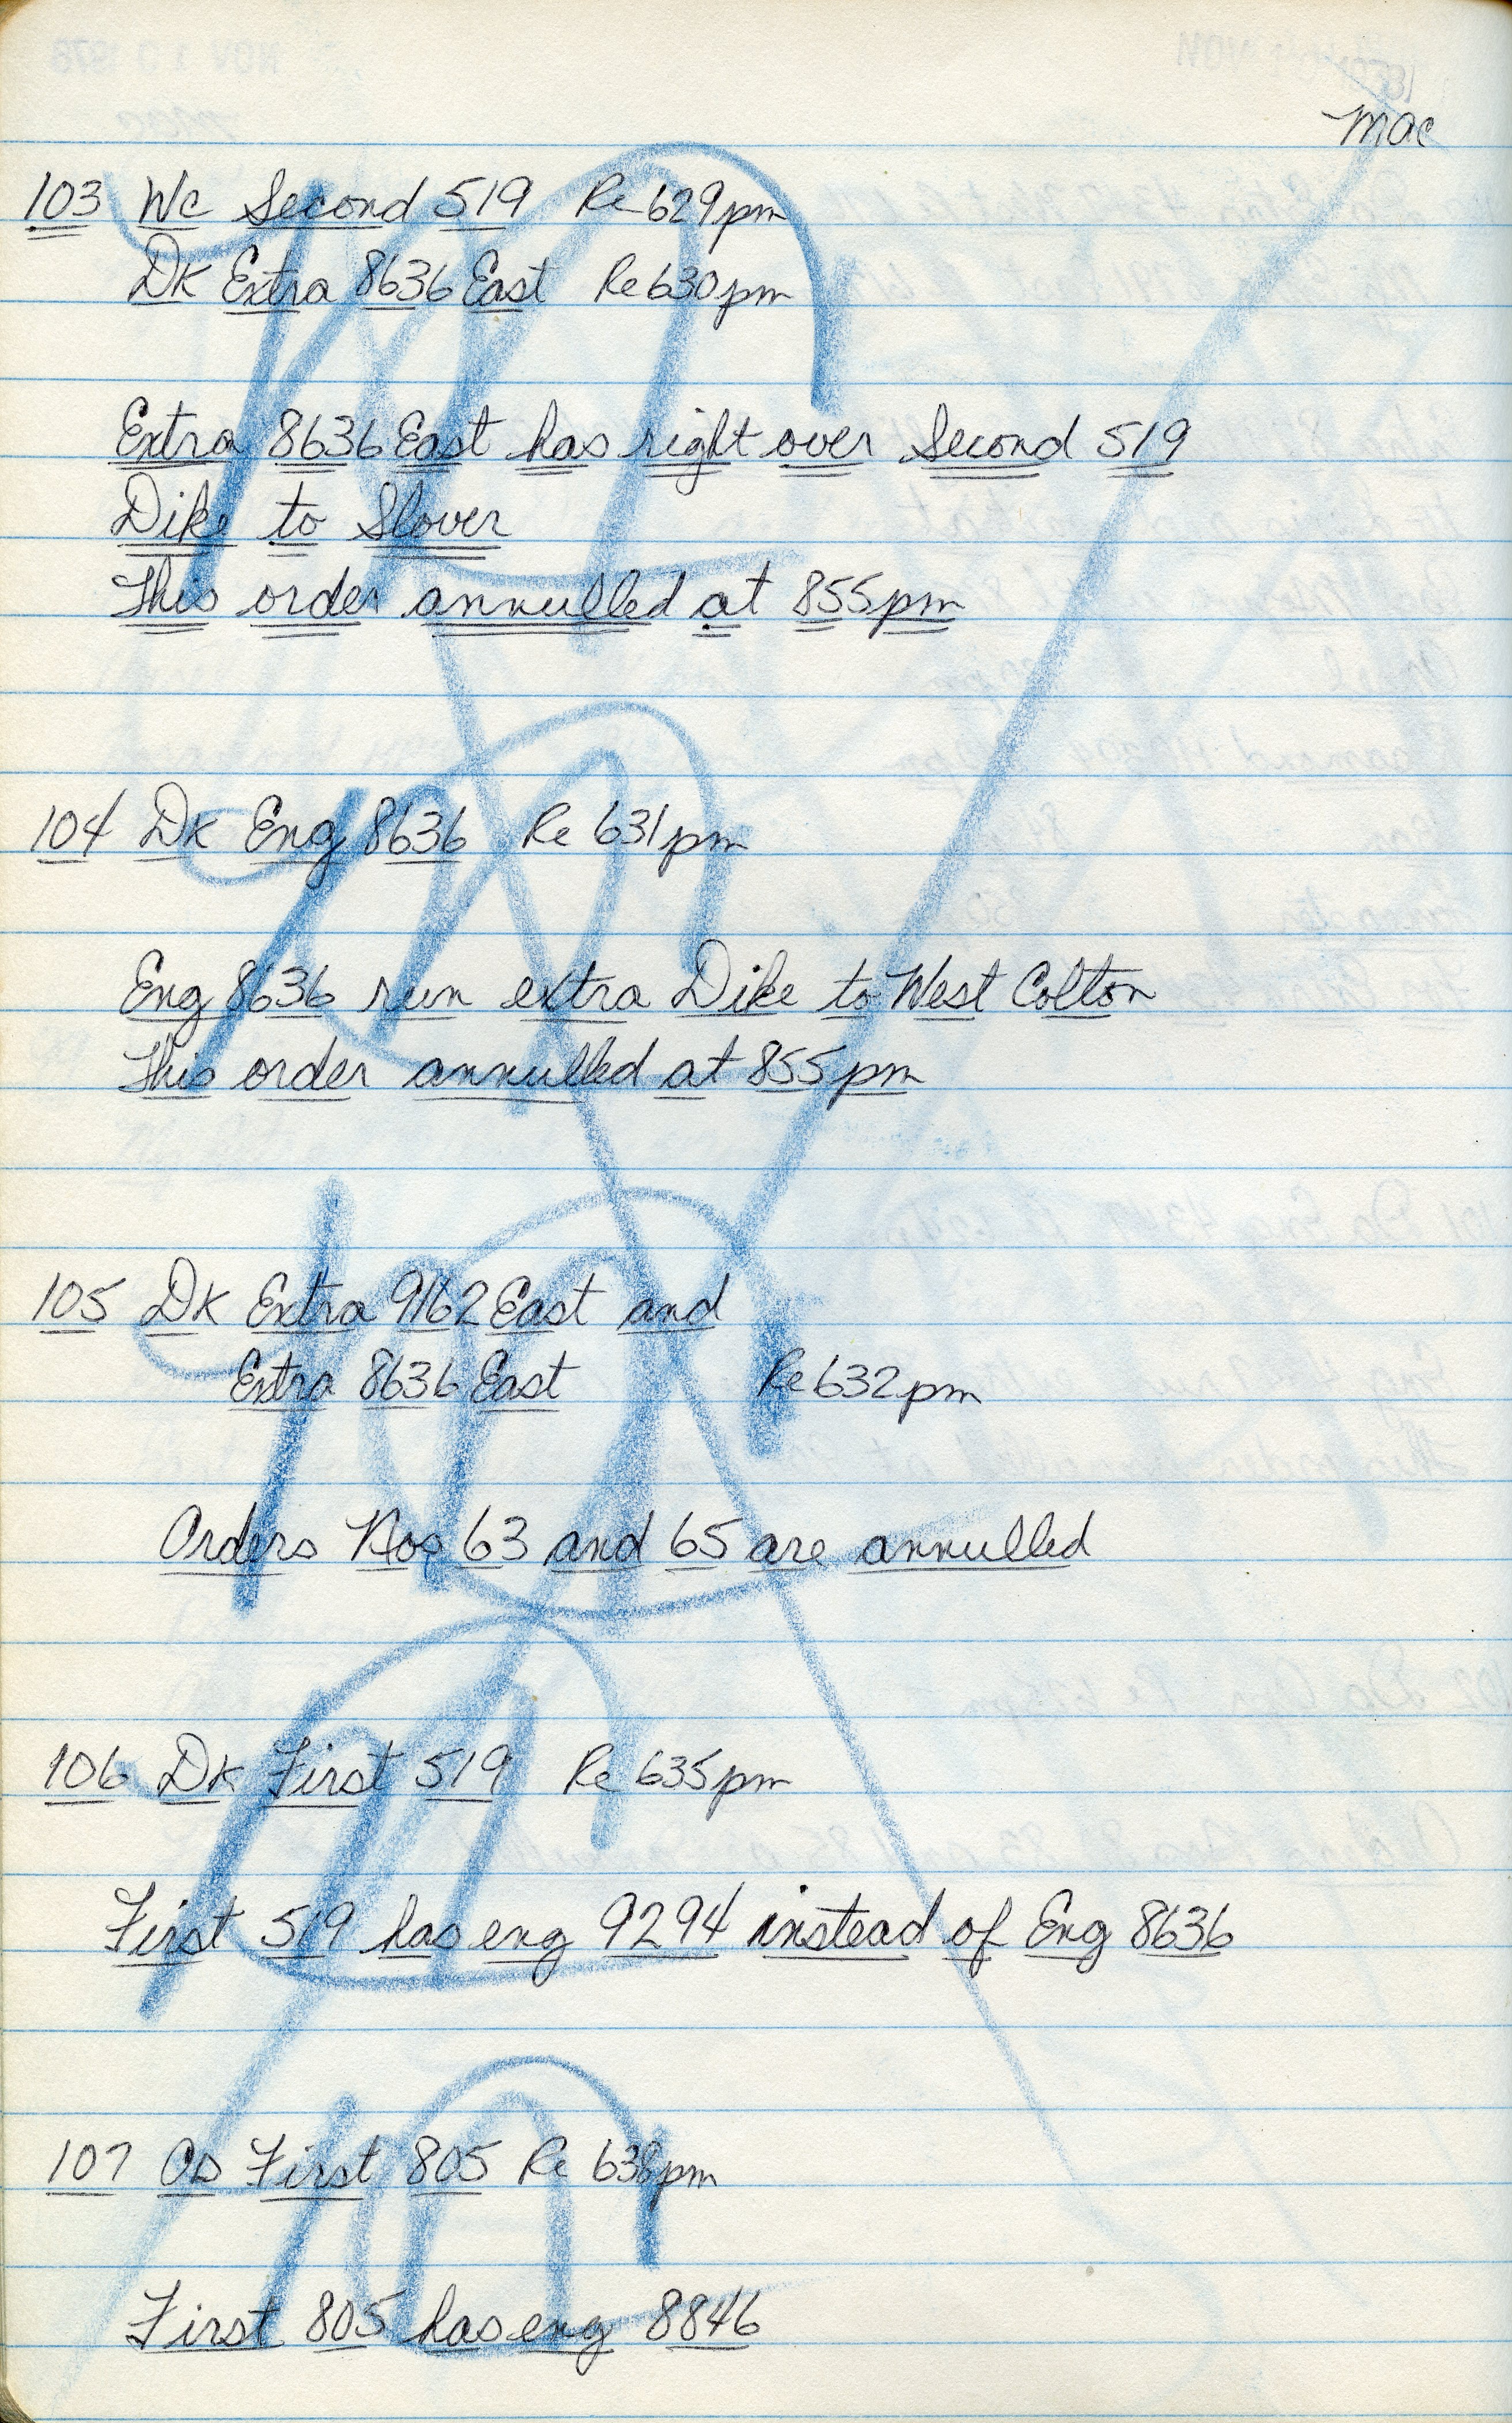 mac
103 Wc Second 519 Re 629pm
DK Extra 8636 East Re 630pm
Extra 8636 East has right over Second 519
Dike to Slover
This order annulled at 855pm
104 DK Eng 8636 Re 631pm
Eng 8636 run extra Dike to West Colton
This order annulled at 855pm
105 DK Extra 9162 East and
Extra 8636 East Re 632pm
Orders Nos 63 and 65 are annulled
106 DK First 519 Re 635pm
First 519 has eng 9294 instead of Eng 8636
107 First 805 Re 638pm
First 805 has eng 8846